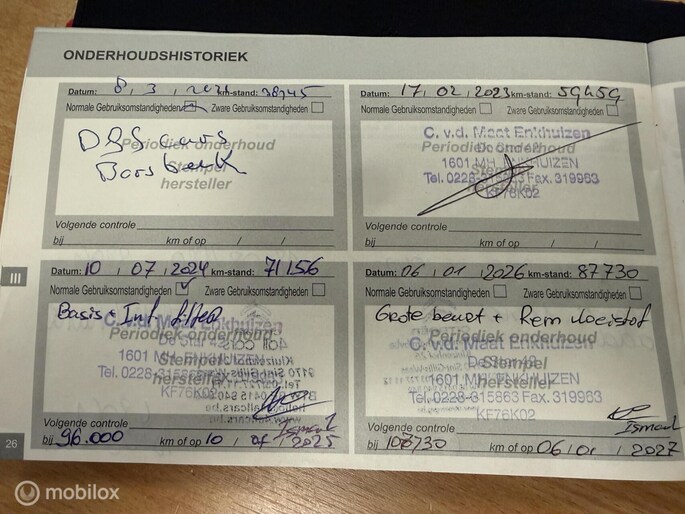 ONDERHOUDSHISTORIEK
Datum: 8, 3, km-stand: 38745
Normale Gebruiksomstandigheden Zware Gebruiksomstandigheden
D&S cars
Periodiek onderhoud
Stempel
hersteller
Volgende controle
bij km of op / /
Datum: 17, 02, 2023 km-stand: 59459
Normale Gebruiksomstandigheden Zware Gebruiksomstandigheden
C. v.d. Maat Enkhuizen
Periodiek onderhoud
1601 MH ENKHUIZEN
Stempel
Tel. 0228-315863 Fax. 319963
hersteller
KF76K02
Volgende controle
bij km of op / /
III
Datum: 10, 07, 2024 km-stand: 71156
Normale Gebruiksomstandigheden Zware Gebruiksomstandigheden
Basis + Int filter
C. v.d. Maat Enkhuizen
Periodiek onderhoud
1601 MH ENKHUIZEN
Stempel
Tel. 0228-315863
hersteller
KF76K02
Volgende controle
Ismael
bij 96.000 km of op 10, 07, 2025
Datum: 06, 01, 2026 km-stand: 87730
Normale Gebruiksomstandigheden Zware Gebruiksomstandigheden
Grote beurt + Remvloeistof
Periodiek onderhoud
C. v.d. Maat Enkhuizen
Stempel
1601 MH ENKHUIZEN
hersteller
Tel. 0228-315863 Fax. 319963
KF76K02
Volgende controle
Ismael
bij 107730 km of op 06, 01, 2027
26
mobilox